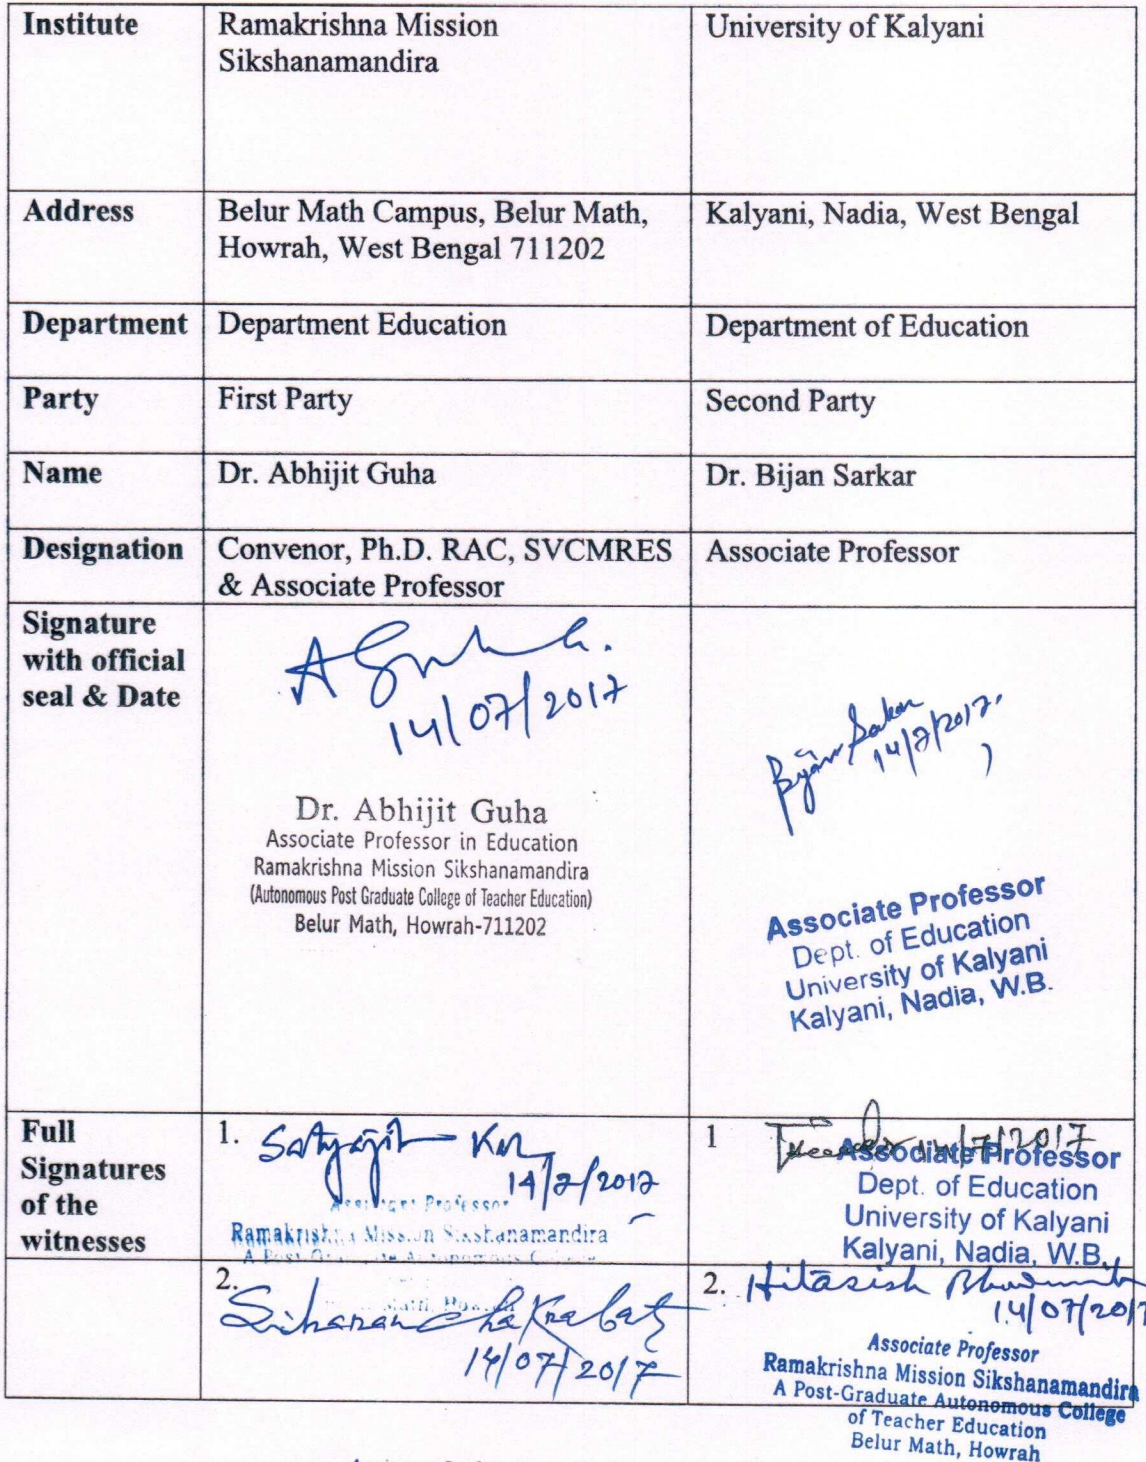 Institute
Ramakrishna Mission
Sikshanamandira
University of Kalyani
Address
Belur Math Campus, Belur Math,
Howrah, West Bengal 711202
Kalyani, Nadia, West Bengal
Department
Department Education
Department of Education
Party
First Party
Second Party
Name
Dr. Abhijit Guha
Dr. Bijan Sarkar
Designation
Convenor, Ph.D. RAC, SVCMRES
& Associate Professor
Associate Professor
Signature
with official
seal & Date
A Guha.
14/07/2017
Dr. Abhijit Guha
Associate Professor in Education
Ramakrishna Mission Sikshanamandira
(Autonomous Post Graduate College of Teacher Education)
Belur Math, Howrah-711202
Bijan Sarkar
14/7/2017.
Associate Professor
Dept. of Education
University of Kalyani
Kalyani, Nadia, W.B.
Full
Signatures
of the
witnesses
1. Satyajit Kar
14/7/2017
Assistant Professor
Ramakrishna Mission Sikshanamandira
A Post-Graduate Autonomous College
1
14/7/2017
Associate Professor
Dept. of Education
University of Kalyani
Kalyani, Nadia, W.B.
2.
Math, Howrah
14/07/2017
2. Hitasish
14/07/2017
Associate Professor
Ramakrishna Mission Sikshanamandira
A Post-Graduate Autonomous College
of Teacher Education
Belur Math, Howrah